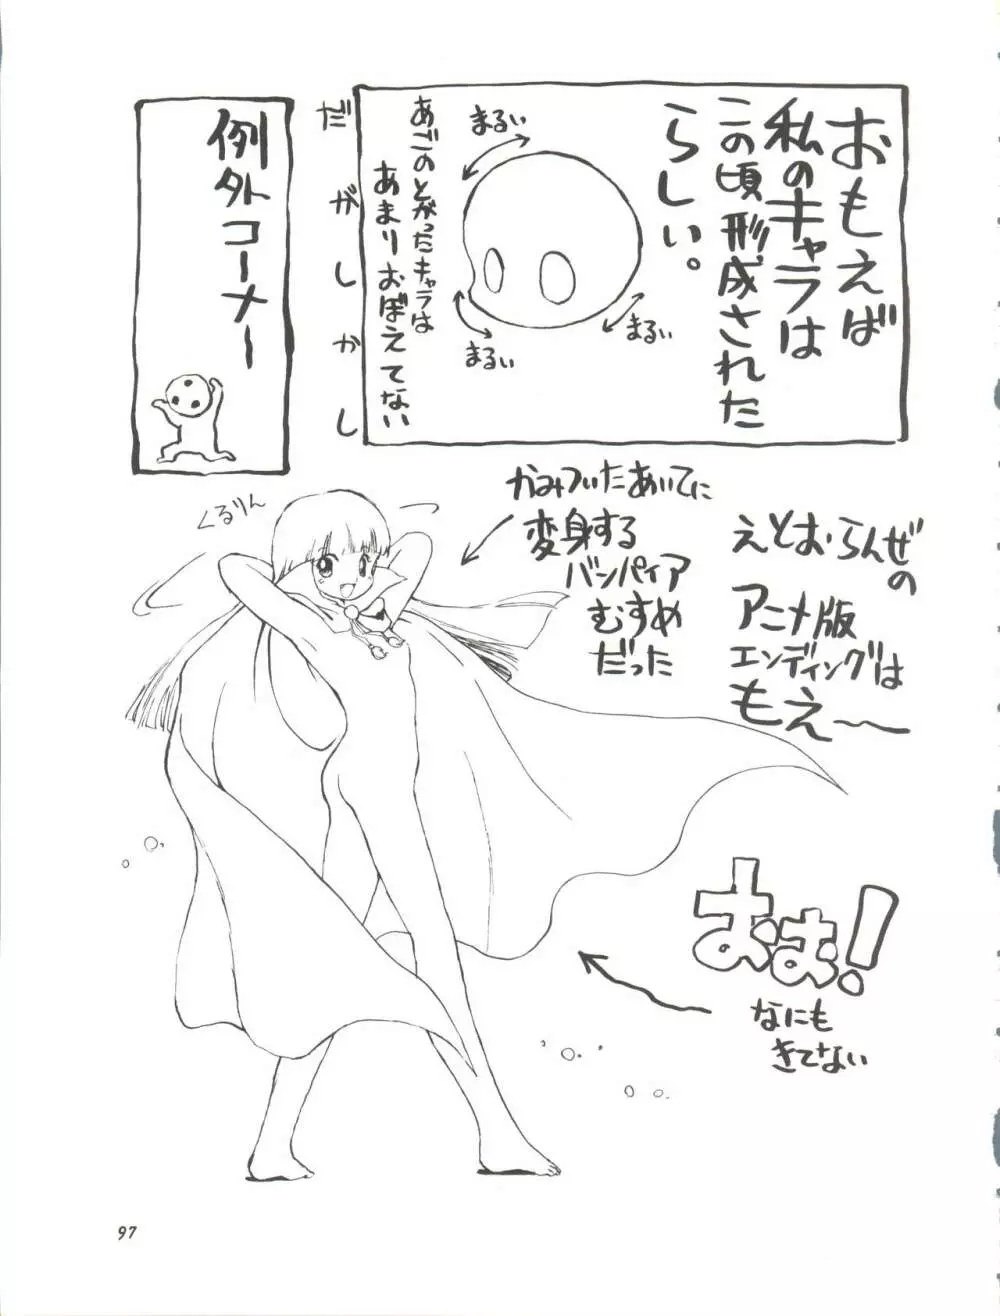 おもえば
私のキャラは
この頃形成された
らしい。
まるい
まるい
まるい
あごのとがったキャラは
あまりおぼえてない
だがしかし
例外コーナー
くるりん
かみついたあいてに
変身する
バンパイア
むすめ
だった
えとお・らんぜの
アニメ版
エンディングは
もえ〜〜
おぉ!
なにも
きてない
97